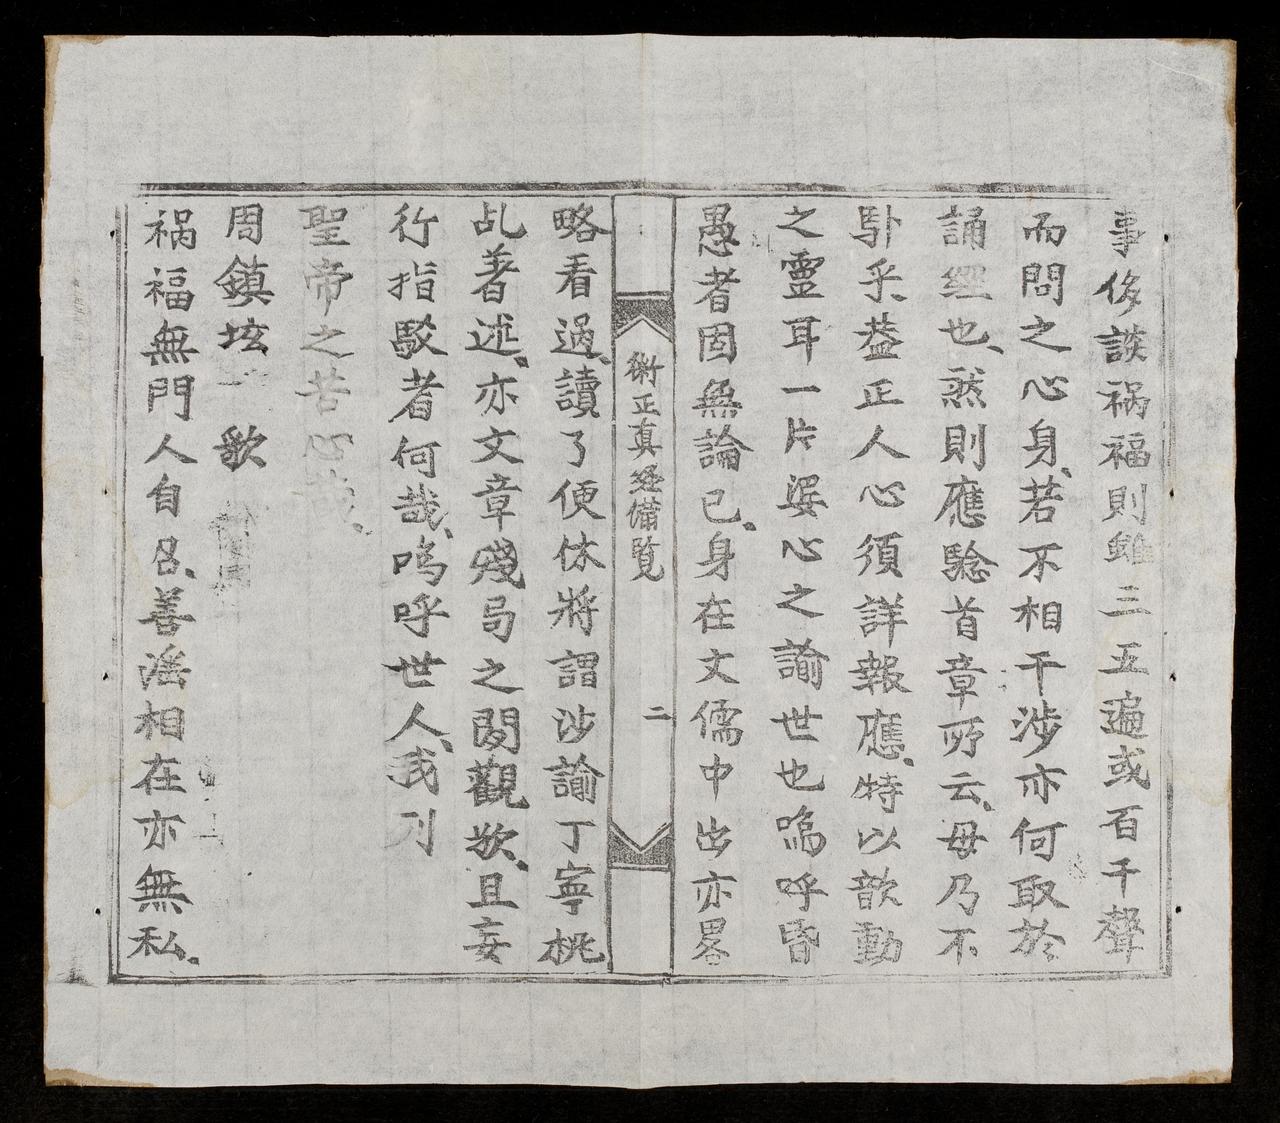 事侈談祸福則雖三五遍或百千聲
而問之心身、若不相干涉亦何取於
誦經也、然則應騐首章所云、毋乃不
卧乎、盖正人心須詳報應、特以歆動
之靈耳一片婆心之諭世也嗚呼昏
愚者固無論已、身在文儒中出亦畧
衛正真經備覧
二
略看過、讀了便休將謂涉諭丁寧桃
乩著述、亦文章殘局之閱觀欤、且妄
行指駁者何哉、嗚呼世人、我列
聖帝之苦心哉、
周鎮垓一歌
祸福無門人自召、善滛相在亦無私、